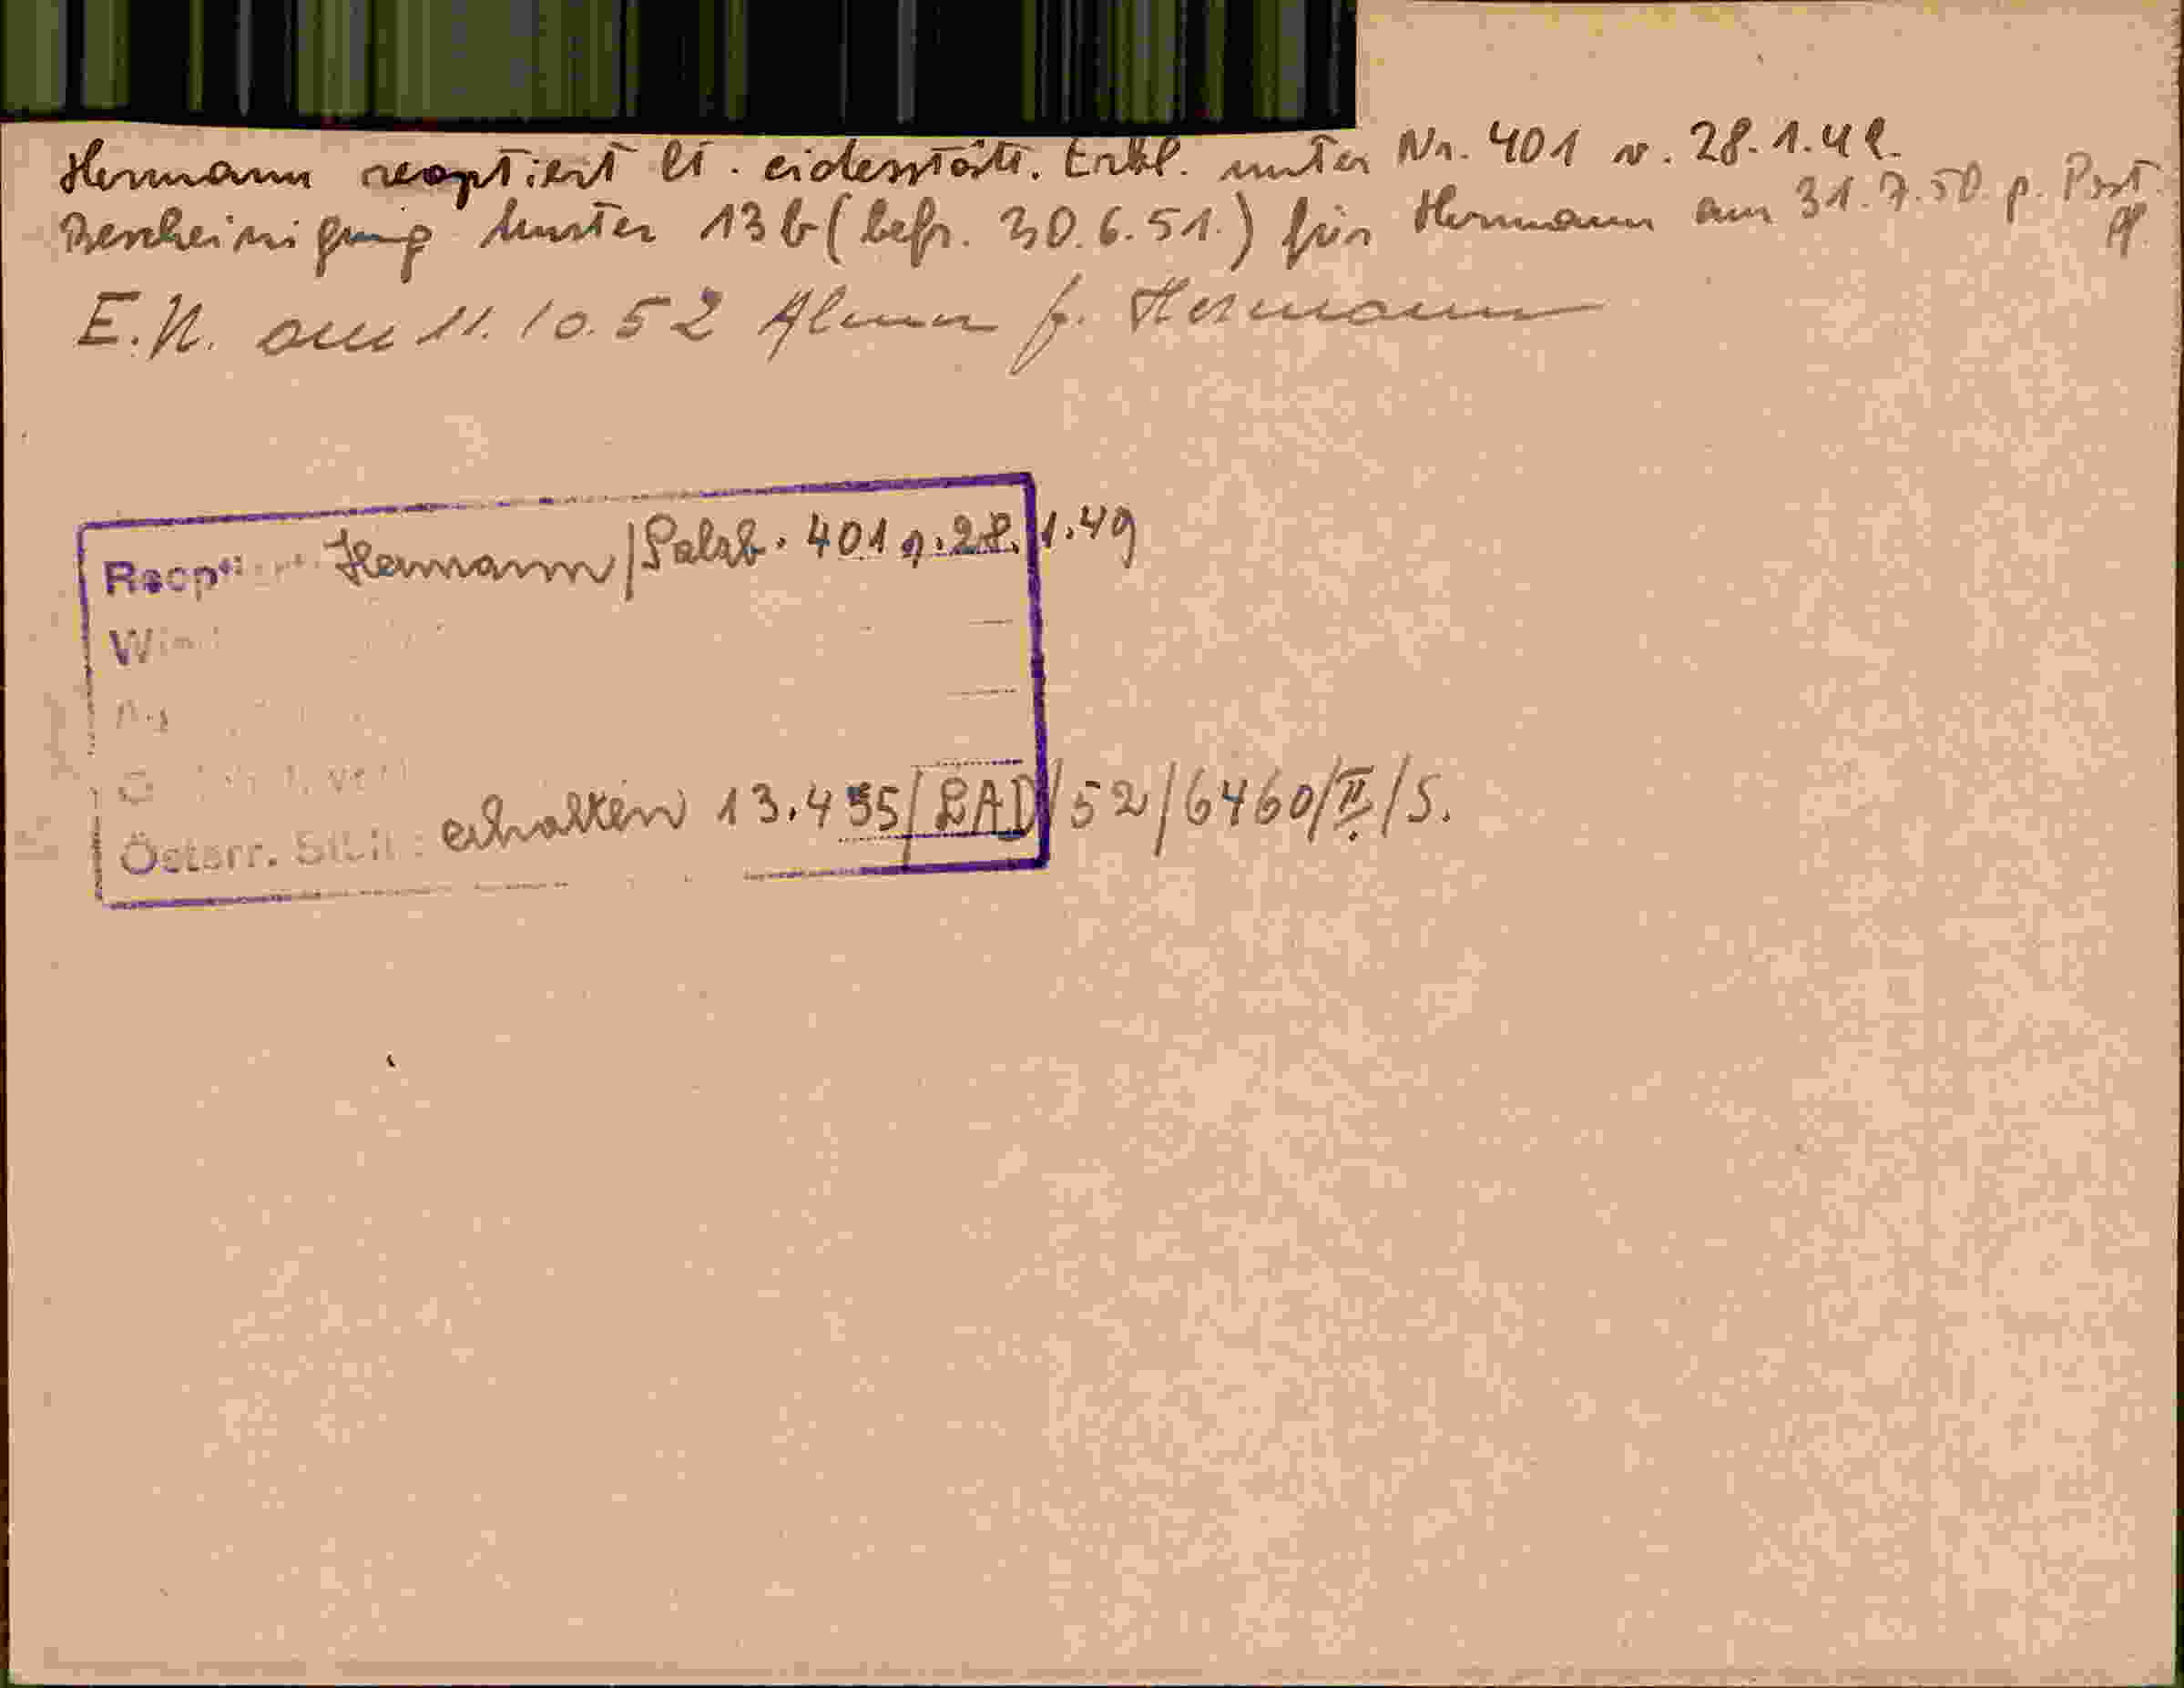 Hermann reoptiert lt. eidesstätt. Erkl. unter Nr. 401 v. 28.1.49.
Bescheinigung Muster 13b (befr. 30.6.51.) für Hermann am 31.7.50 p. Post.
E.N. am 11.10.52 f. Hermann
Hermann/Salzb. 401 v. 28.1.49
Österr. Stb.: erhalten 13.455/LAD/52/6460/II/S.